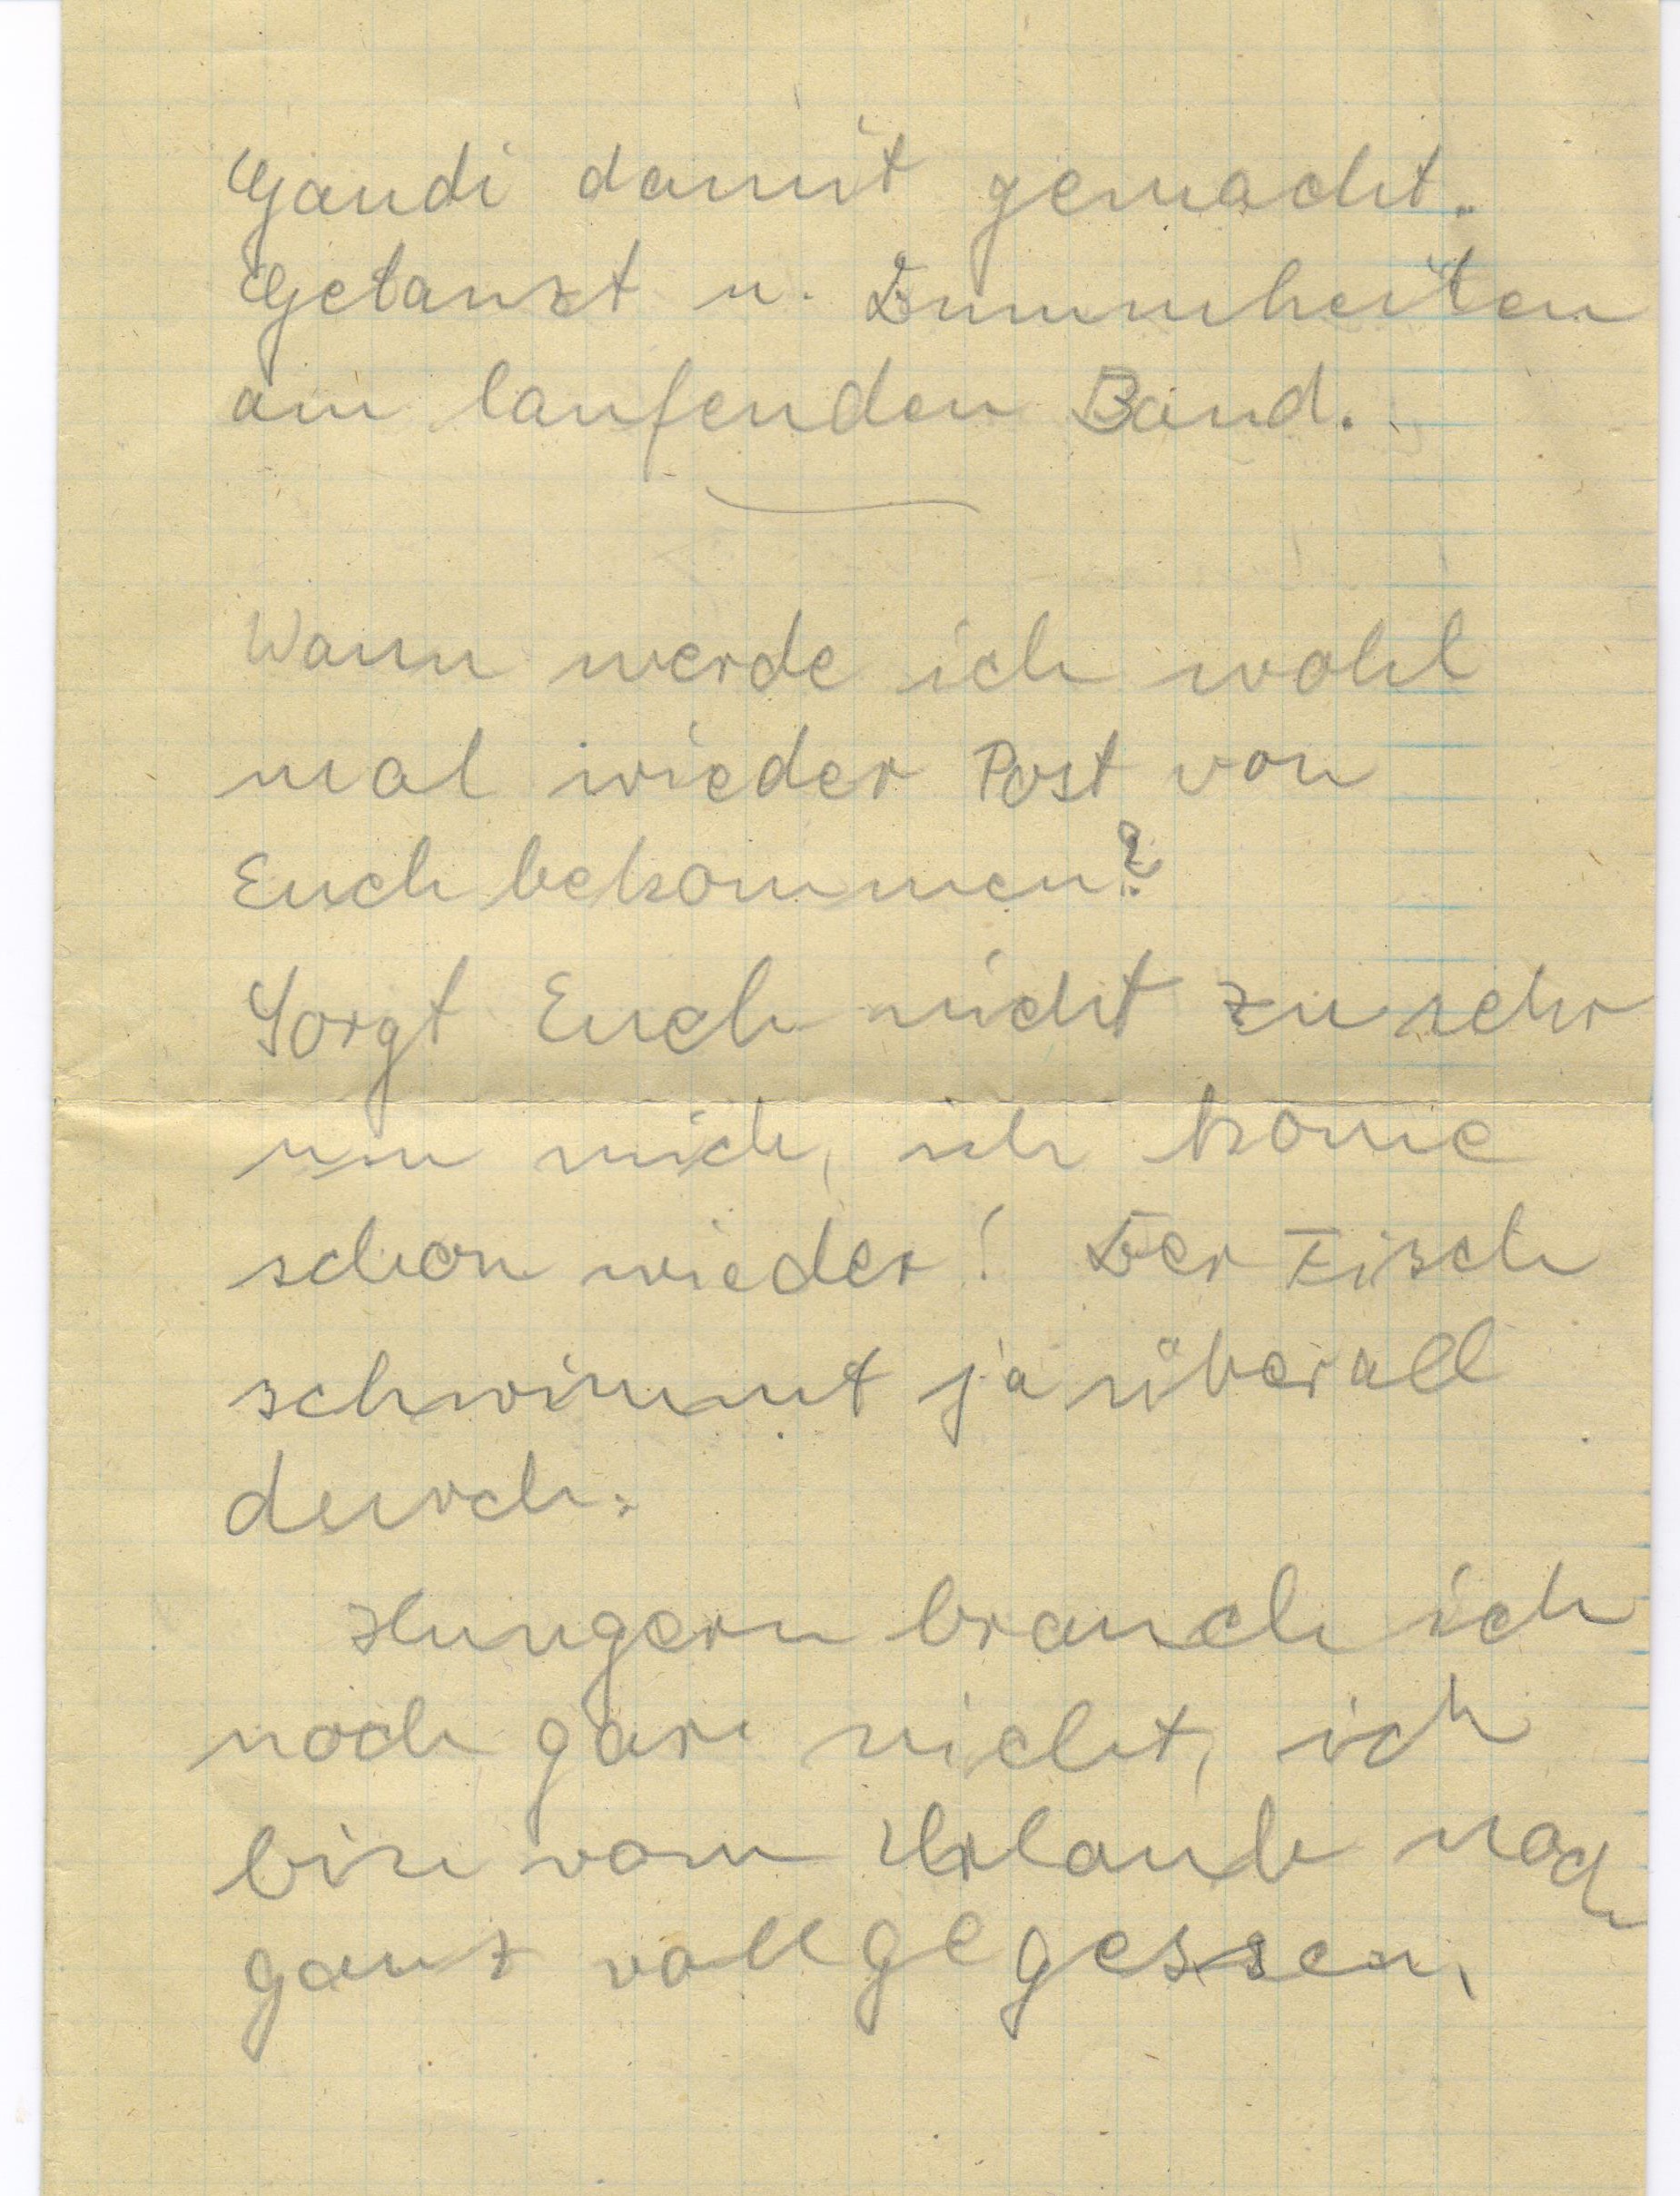 Gaudi damit gemacht.
Getanzt u. Dummheiten
am laufenden Band.
Wann werde ich wohl
mal wieder Post von
Euch bekommen?
Sorgt Euch nicht zu sehr
um mich, ich kome
schon wieder! Der Fisch
schwimmt ja überall
durch.
Hungern brauch ich
noch gar nicht, ich
bin vom Urlaub noch
ganz vollgegessen,